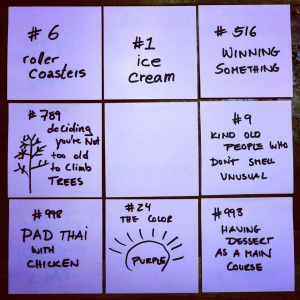 # 6
roller
coasters
#1
ice
cream
# 516
WINNING
SOMETHING
# 789
deciding
you're Not
too old
to climb
TREES
# 9
KIND OLD
PEOPLE WHO
DON'T SMELL
UNUSUAL
# 998
PAD THAI
WITH
CHICKEN
#24
THE COLOR
PURPLE
# 993
HAVING
DESSERT
AS A MAIN
COURSE